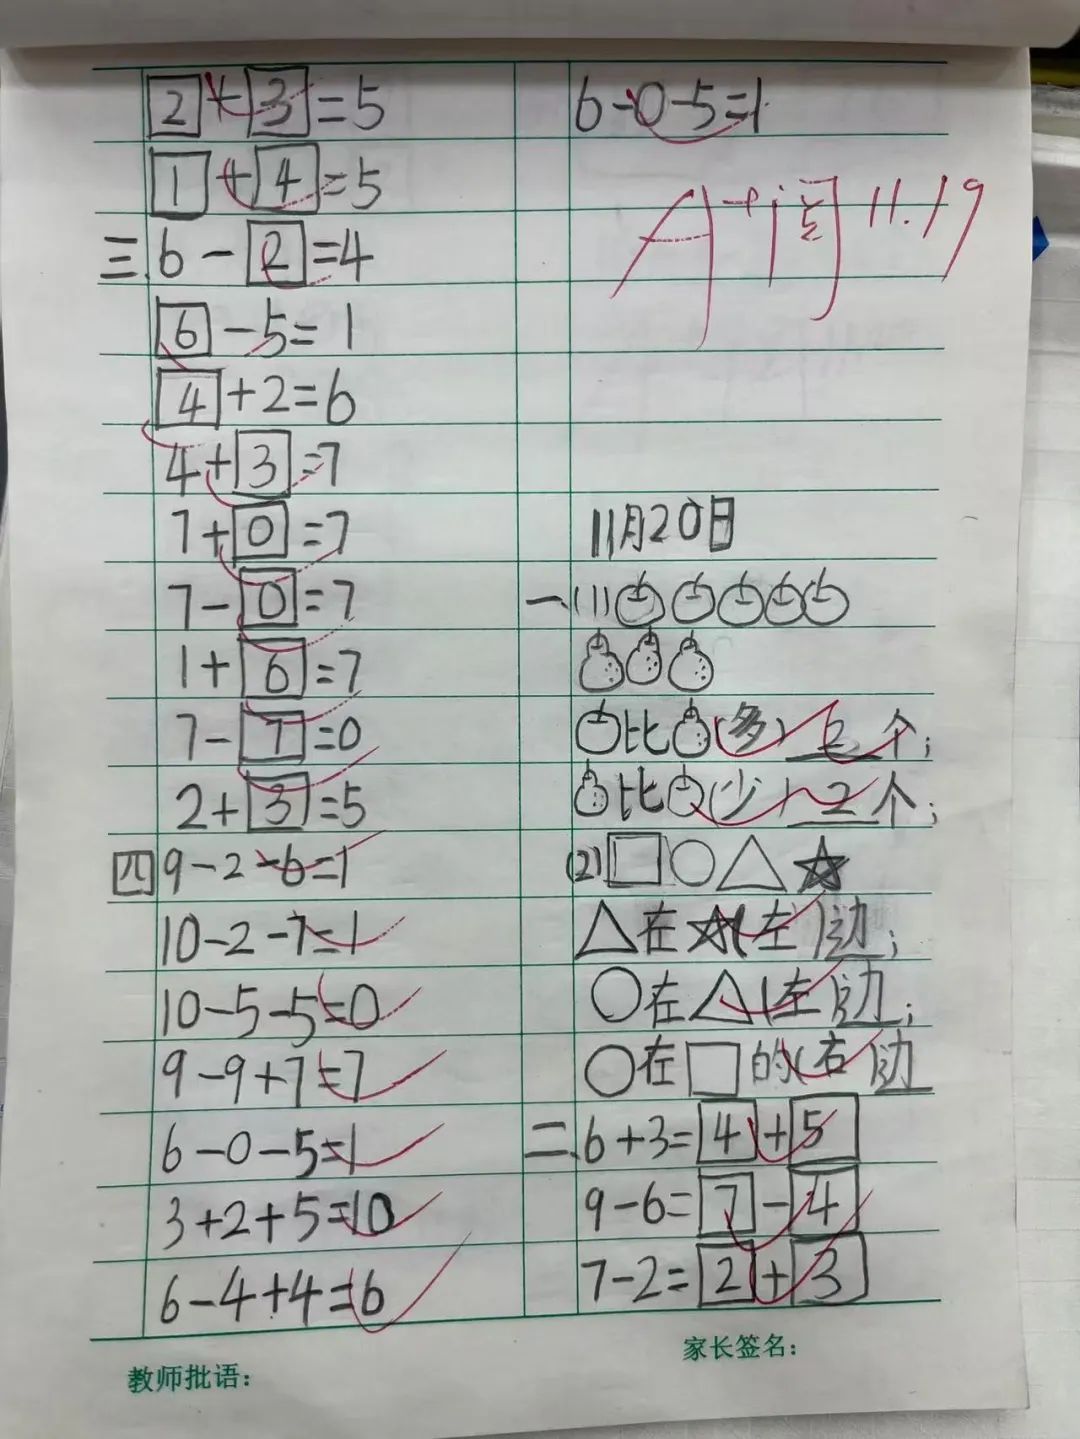 2+3=5
1+4=5
三.6-2=4
6-5=1
4+2=6
4+3=7
7+0=7
7-0=7
1+6=7
7-7=0
2+3=5
四9-2-6=1
10-2-7=1
10-5-5=0
9-9+7=7
6-0-5=1
3+2+5=10
6-4+4=6
教师批语：
6-0-5=1
A+ 阅 11.19
11月20日
一.(1)
比(多)2个;
比(少)2个;
(2)□○△☆
△在☆(左)边;
○在△(左)边;
○在□的(右)边
二.6+3=4+5
9-6=7-4
7-2=2+3
家长签名：